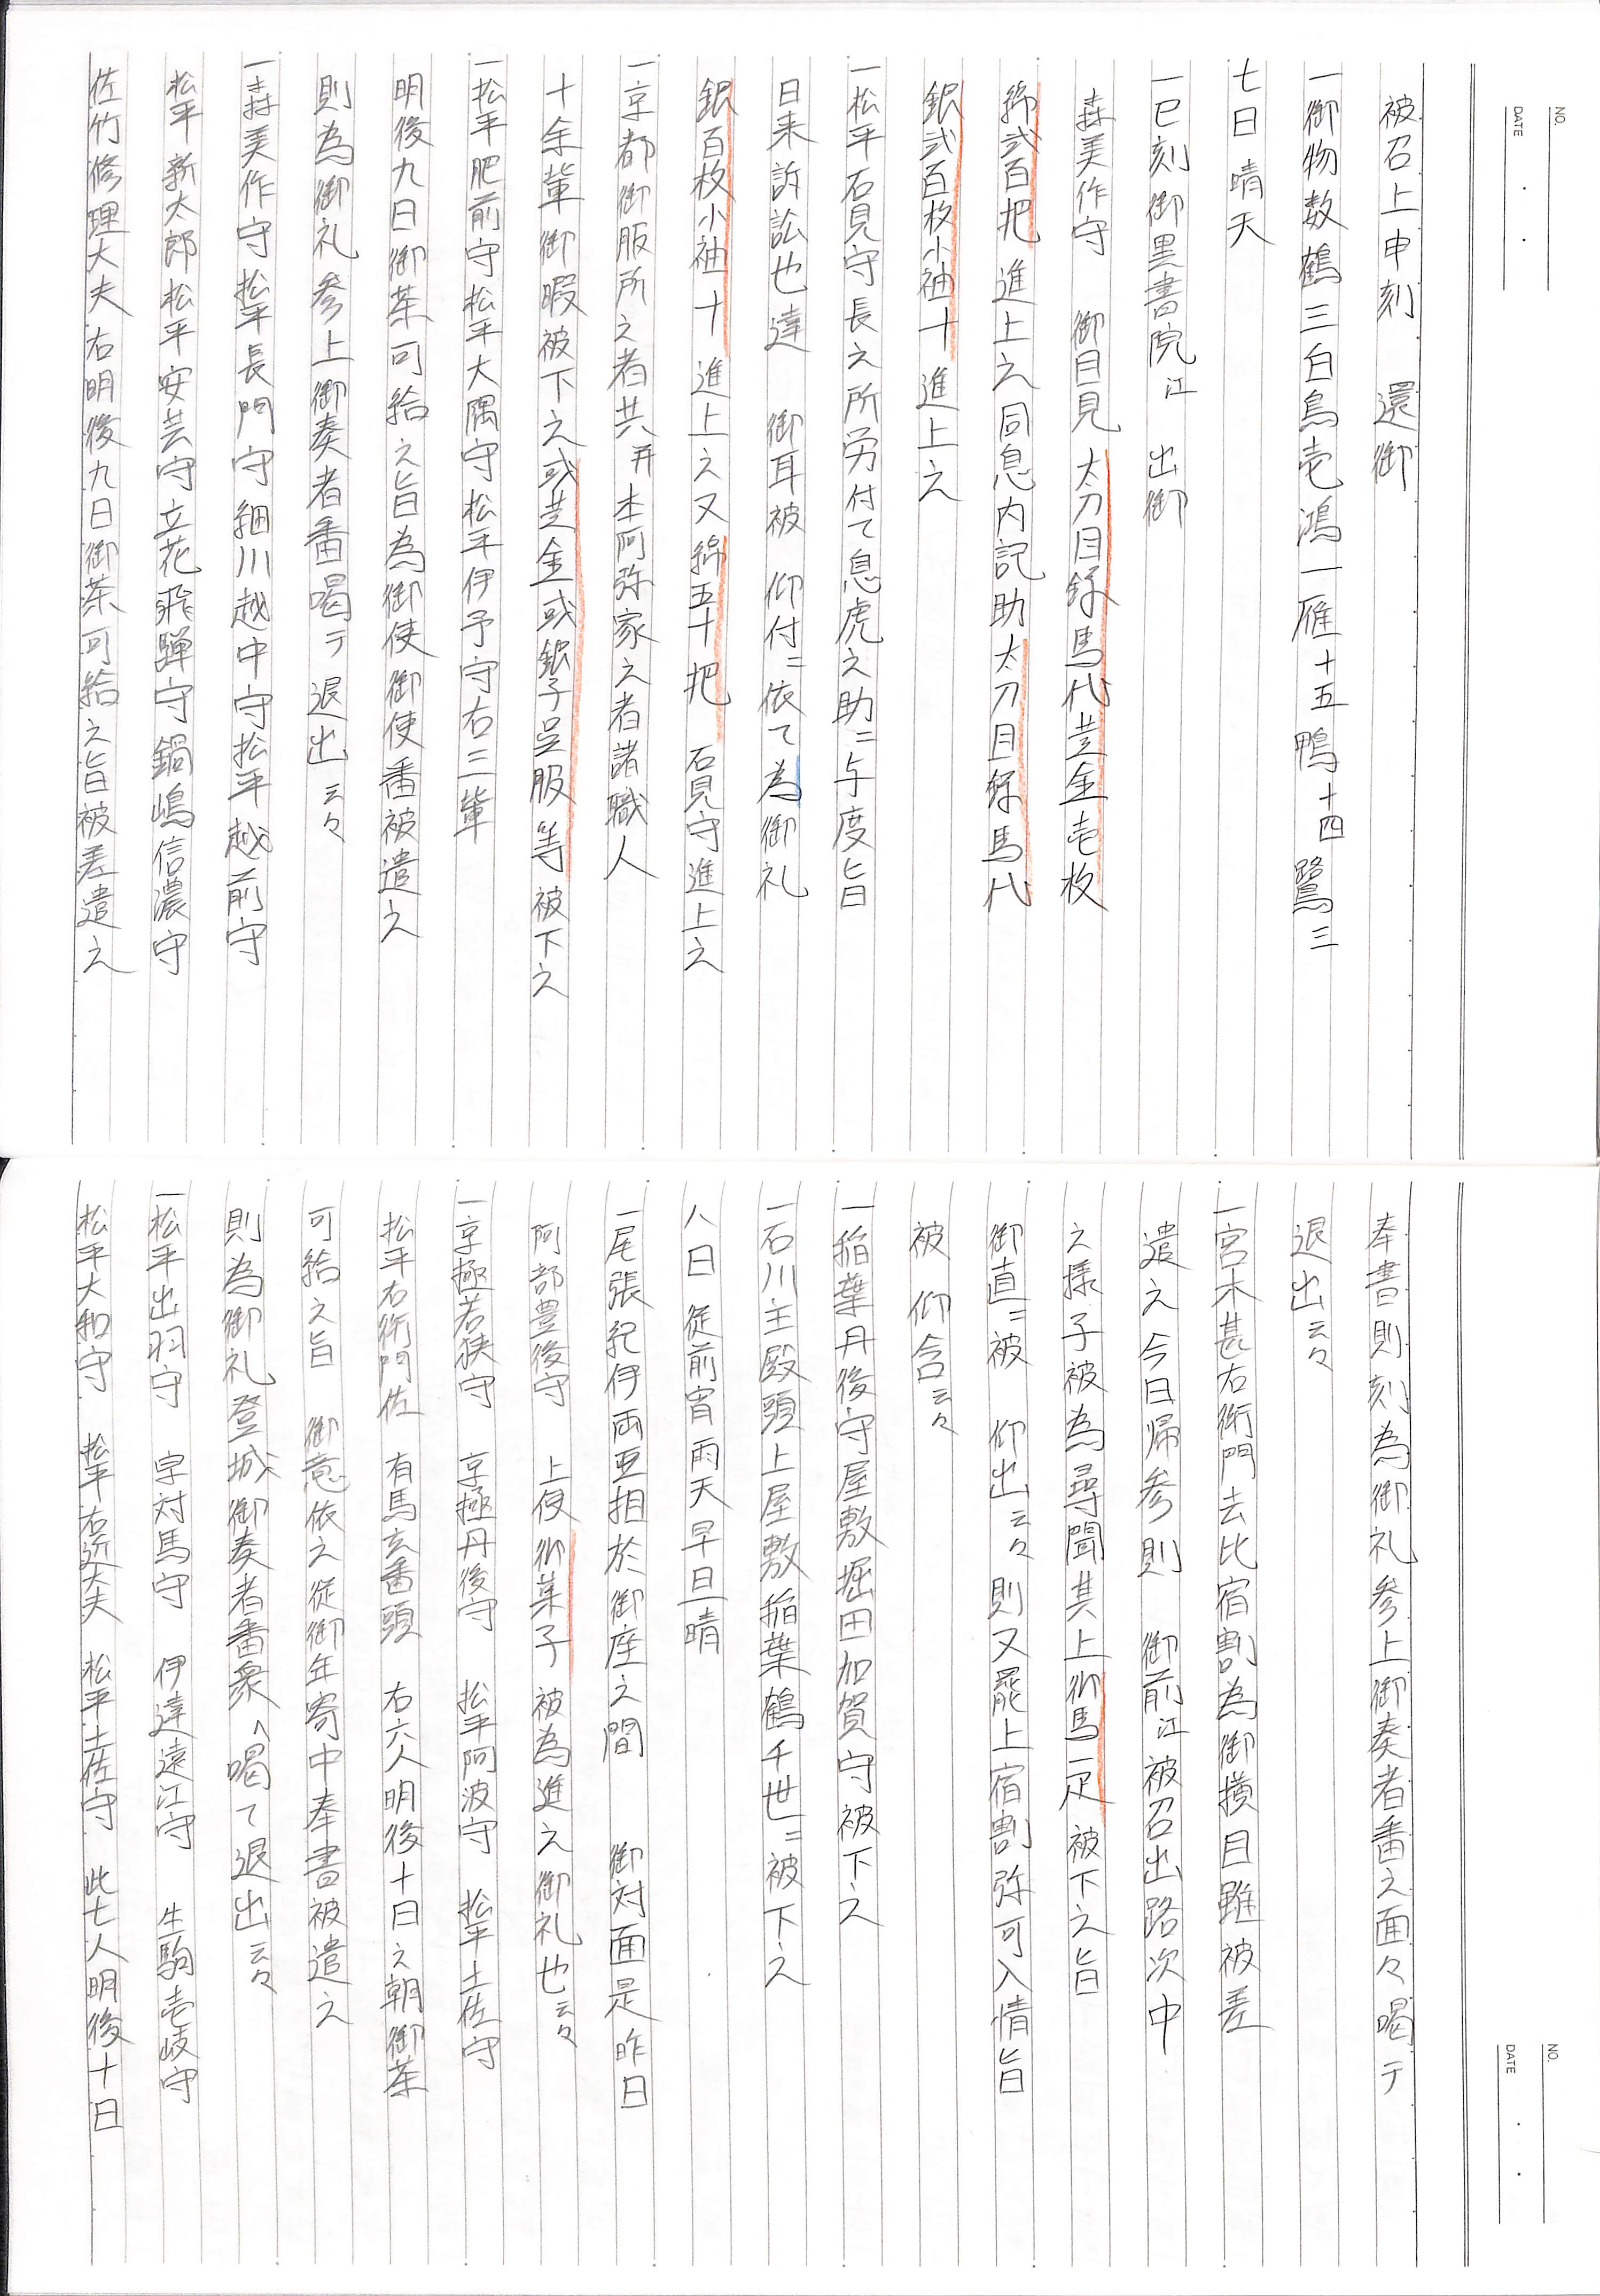 被召上申刻　還御
一御物数鶴三白鳥壱鴻一雁十五鴨十四鷺三
七日 晴天
一巳刻御黒書院江　出御
森美作守　御目見　太刀目録馬代芏金壱枚
綿弐百把　進上之同息内記助太刀目録馬代
銀弐百枚小袖十　進上之
一松平石見守長之所労付て息虎之助ニ与度旨
日来訴訟也達　御耳被　仰付ニ依て為御礼
銀百枚小袖十　進上之又綿五十把　石見守進上之
一京都御服所之者共并本阿弥家之者諸職人
十余輩御暇被下之或芏金或銀子呈服等被下之
一松平肥前守松平大隅守松平伊予守右三輩
明後九日御茶可給之旨為御使御使番被遣之
則為御礼参上御奏者番喝テ退出云々
一森美作守松平長門守細川越中守松平越前守
松平新太郎松平安芸守立花飛騨守鍋嶋信濃守
佐竹修理大夫右明後九日御茶可給之旨被差遣之
奉書則刻為御礼参上御奏者番之面々喝テ
退出云々
一宮木甚右衛門去比宿割為御横目雖被差
遣之今日帰参則　御前江被召出路次中
之様子被為尋聞其上御馬一疋被下之旨
御直ニ被　仰出云々則又罷上宿割弥可入情旨
被　仰含云々
一稲葉丹後守屋敷堀田加賀守被下之
一石川主殿頭上屋敷稲葉鶴千世ニ被下之
八日 従前宵雨天早旦晴
一尾張紀伊両亜相於御座之間　御対面是昨日
阿部豊後守　上使御菓子　被為進之御礼也云々
一京極若狭守　京極丹後守　松平阿波守　松平土佐守
松平右衛門佐　有馬玄番頭　右六人明後十日之朝御茶
可給之旨　御意依之従御年寄中奉書被遣之
則為御礼登城御奏者番衆へ喝て退出云々
一松平出羽守　宗対馬守　伊達遠江守　生駒壱岐守
松平大和守　松平右近大夫　松平土佐守　此七人明後十日
NO.
DATE ・ ・
NO.
DATE ・ ・